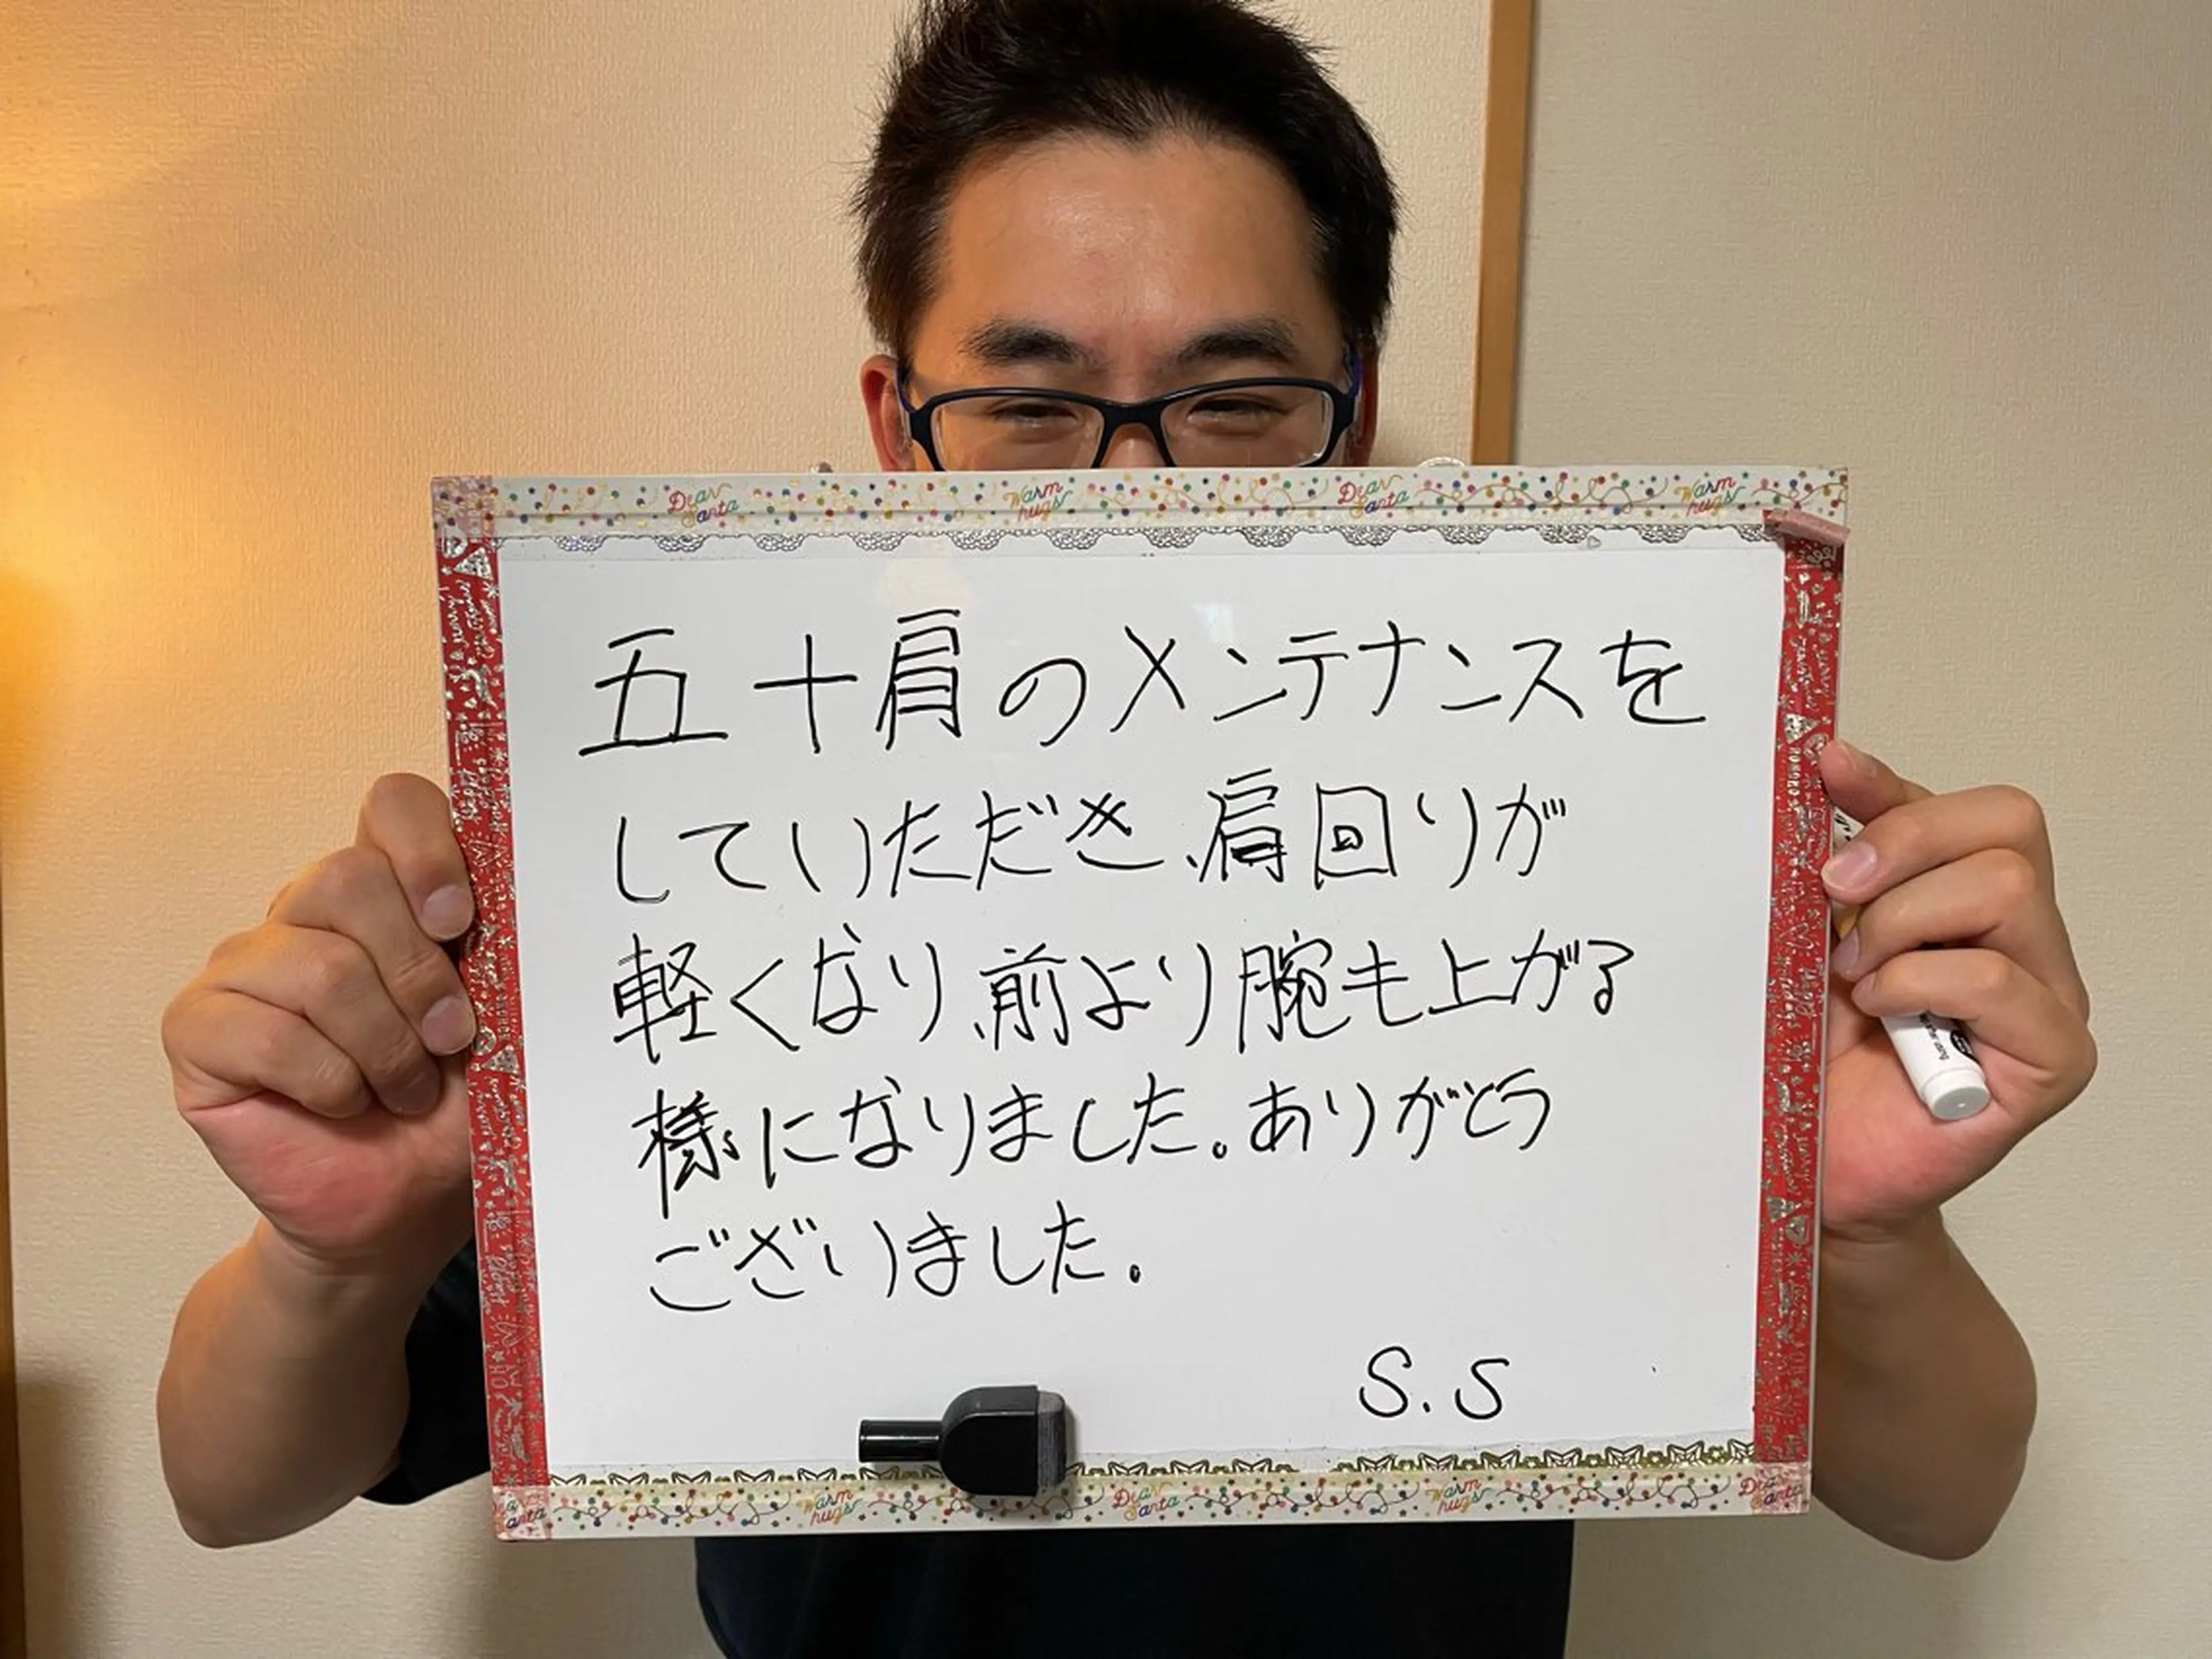 Dear Santa Warm hugs Dear Santa Warm hugs
五十肩のメンテナンスを
していただき、肩回りが
軽くなり、前より腕も上がる
様になりました。ありがとう
ございました。
S.S
Warm hugs Dear Santa Warm hugs Dear Santa